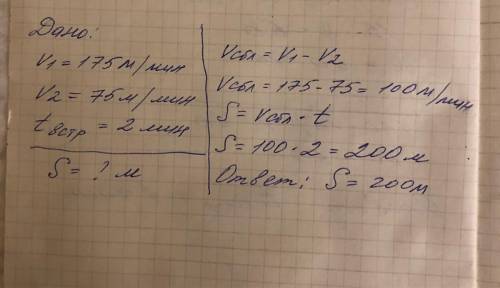 Дано:
V1 = 175 м/мин
V2 = 75 м/мин
t встр = 2 мин
S = ? м
Vсбл = V1 - V2
Vсбл = 175 - 75 = 100 м/мин
S = Vсбл · t
S = 100 · 2 = 200 м
Ответ: S = 200м